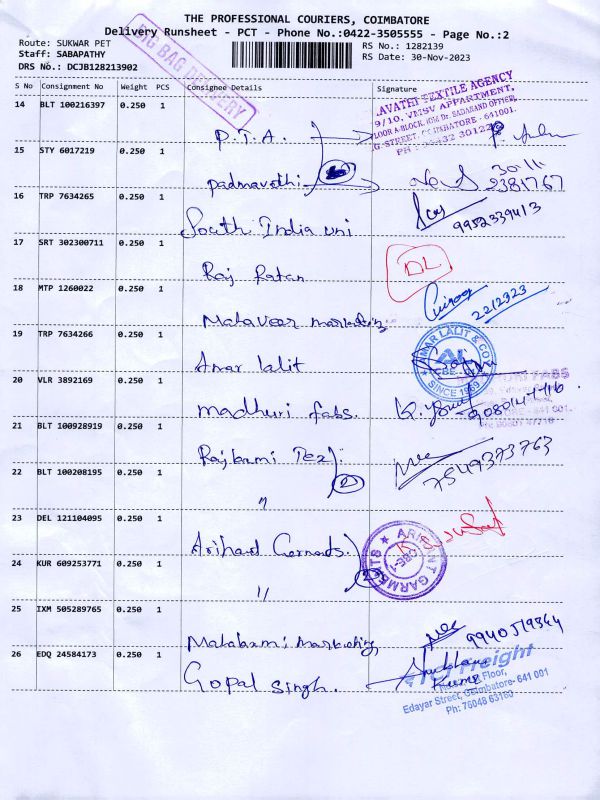 THE PROFESSIONAL COURIERS, COIMBATORE
Delivery Runsheet - PCT - Phone No.:0422-3505555 - Page No.:2
Route: SUKWAR PET
Staff: SABAPATHY
DRS No.: DCJB128213902
RS No.: 1282139
RS Date: 30-Nov-2023
BIG BAG DELIVERY
S No Consignment No Weight PCS Consignee Details Signature
14 BLT 100216397 0.250 1
P.T.A.
AVATHI TEXTILE AGENCY
9/10, VMSV APPARTMENT,
G-STREET, COIMBATORE - 641001.
15 STY 6017219 0.250 1
Padmavathi
2381767
16 TRP 7634265 0.250 1
South India uni
9952339413
17 SRT 302300711 0.250 1
Raj Ratan
DL
18 MTP 1260022 0.250 1
Mahaveer marketing
2212323
19 TRP 7634266 0.250 1
Amar lalit
AMAR LALIT & CO
CBE
SINCE 1969
20 VLR 3892169 0.250 1
madhuri fabs.
FABS
21 BLT 100928919 0.250 1
Rajlaxmi Tex
7549373763
22 BLT 100208195 0.250 1
"
2
23 DEL 121104095 0.250 1
Arihant Garments.
ARIHANT GARMENTS
CBE-1
24 KUR 609253771 0.250 1
"
2
25 IXM 505289765 0.250 1
Mahalaxmi Marketing
9940519344
26 EDQ 24584173 0.250 1
Gopal Singh.
Freight
Floor,
Edayar Street, Coimbatore- 641 001
Ph: 76048 63160